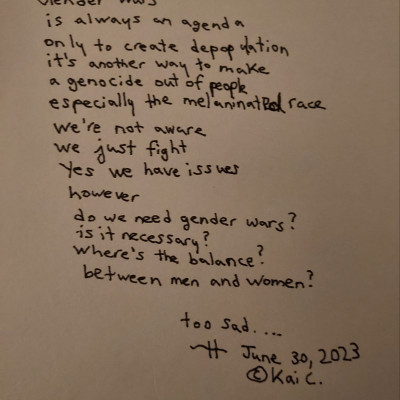 Gender wars
is always an agenda
only to create depopulation
it's another way to make
a genocide out of people
especially the melaninated race
we're not aware
we just fight
Yes we have issues
however
do we need gender wars?
is it necessary?
where's the balance?
between men and women?
too sad....
June 30, 2023
©Kai C.